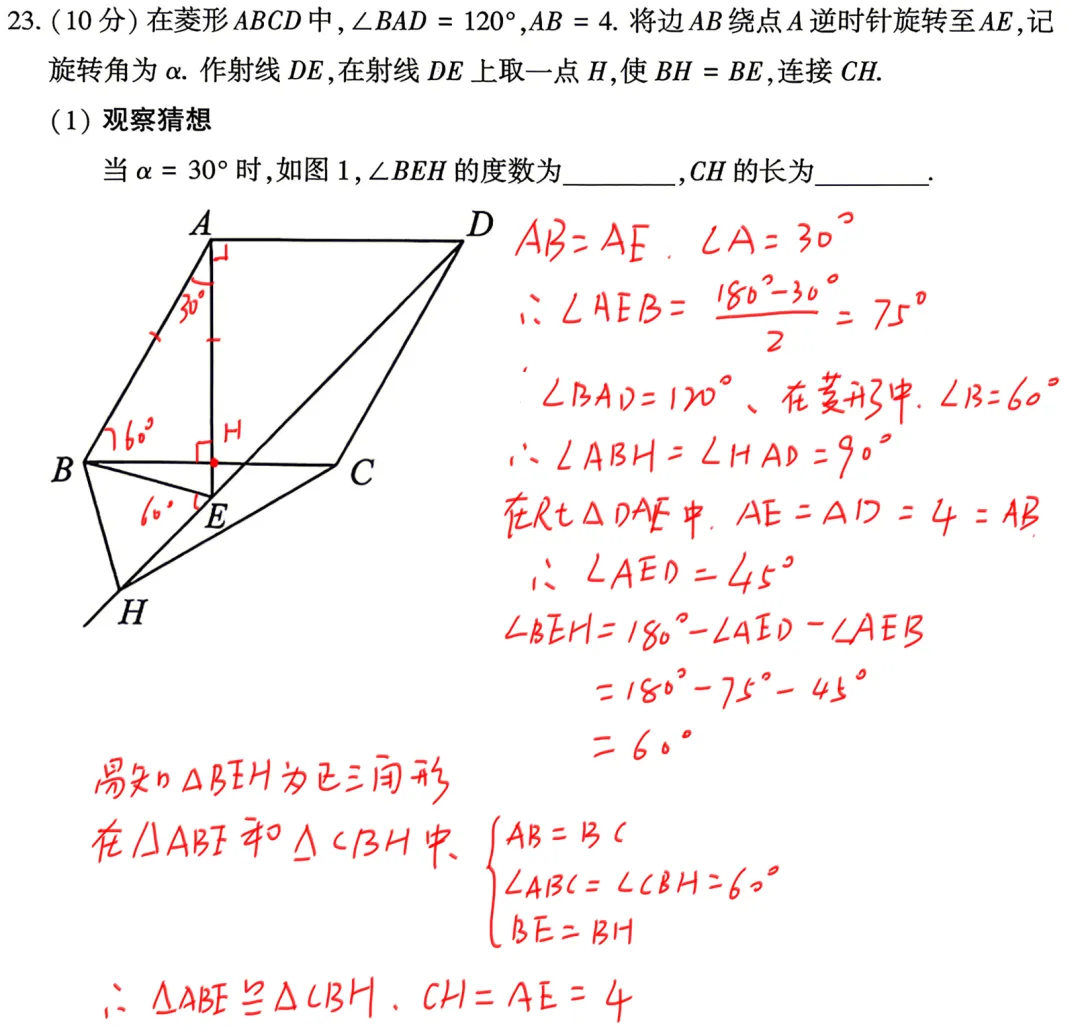 23. (10 分) 在菱形 ABCD 中, ∠BAD = 120°, AB = 4. 将边 AB 绕点 A 逆时针旋转至 AE, 记
旋转角为 α. 作射线 DE, 在射线 DE 上取一点 H, 使 BH = BE, 连接 CH.
(1) 观察猜想
当 α = 30° 时, 如图 1, ∠BEH 的度数为________, CH 的长为________.
A
D
30°
60°
H
B
C
60°
E
H
AB = AE. ∠A = 30°
∴ ∠AEB = (180°-30°)/2 = 75°
∠BAD = 120°、在菱形中. ∠B = 60°
∴ ∠ABH = ∠HAD = 90°
在Rt△DAE中. AE = AD = 4 = AB
∴ ∠AED = 45°
∠BEH = 180° - ∠AED - ∠AEB
= 180° - 75° - 45°
= 60°
易知△BEH为正三角形
在△ABE和△CBH中、
AB = BC
∠ABC = ∠CBH = 60°
BE = BH
∴ △ABE ≌ △CBH. CH = AE = 4